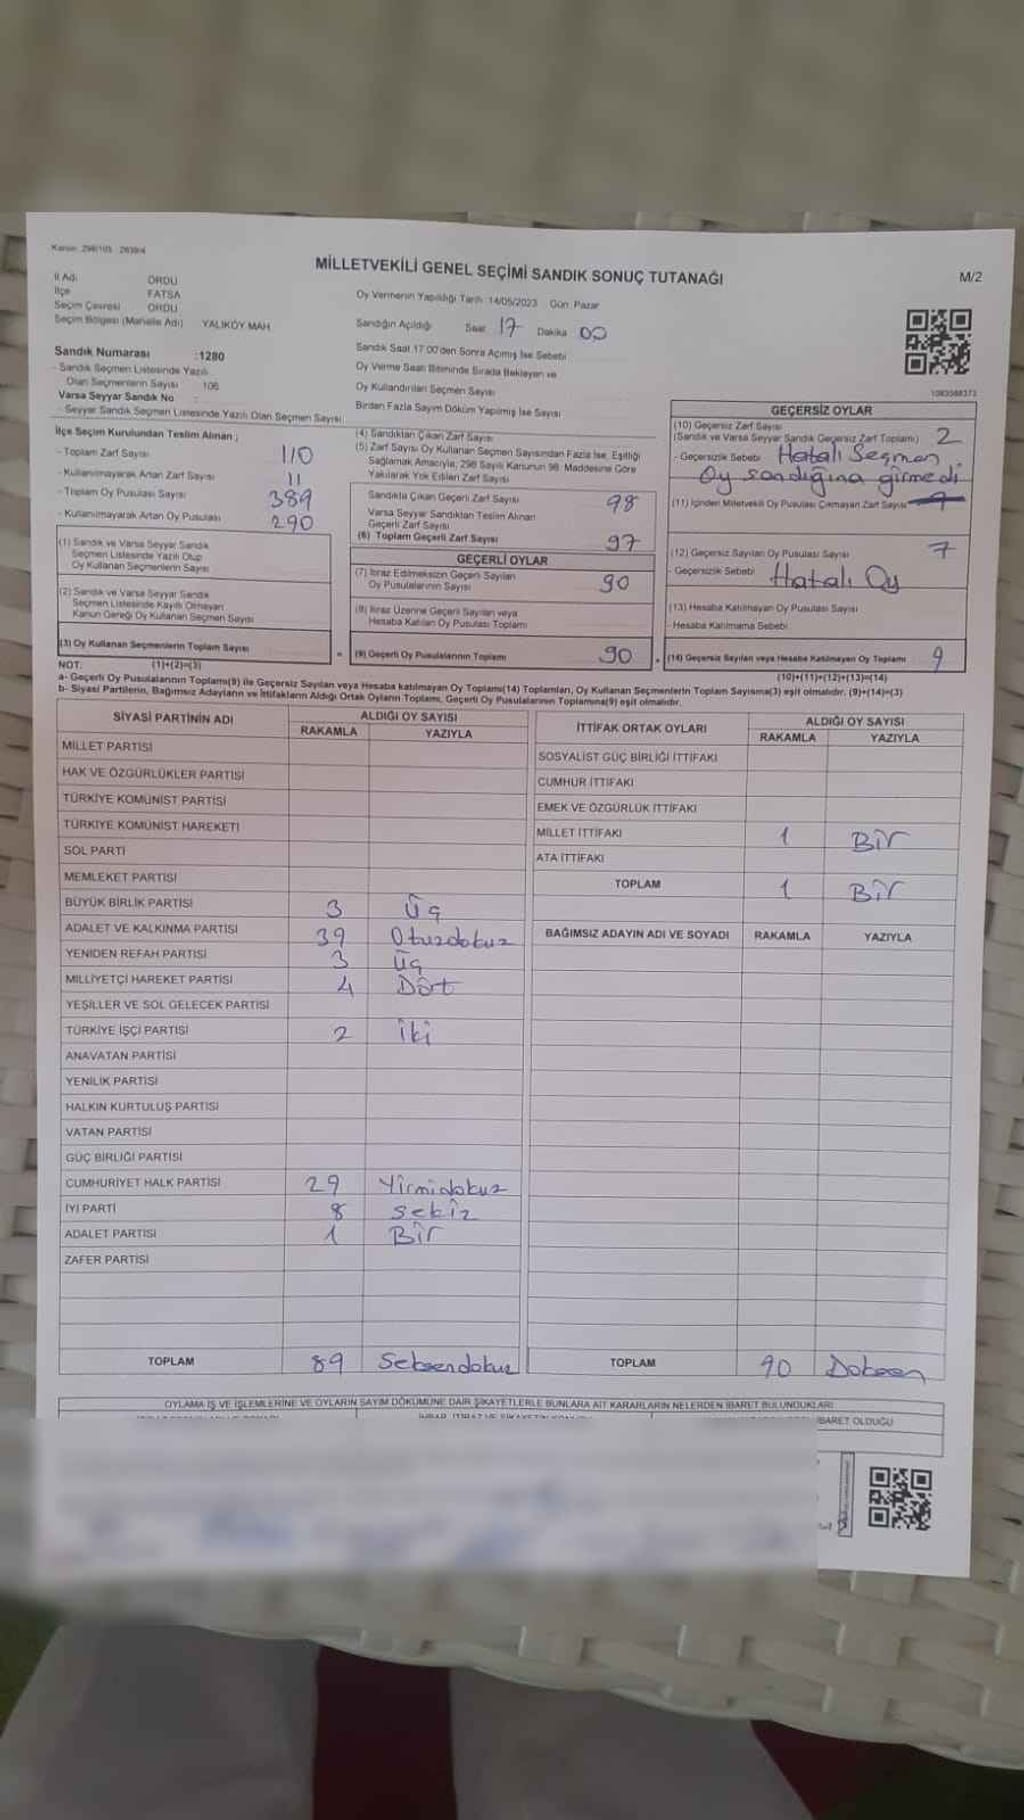 Kanun: 298/105
MİLLETVEKİLİ GENEL SEÇİMİ SANDIK SONUÇ TUTANAĞI
M/2
İl Adı ORDU
İlçe FATSA
Seçim Çevresi ORDU
Seçim Bölgesi (Mahalle Adı) YALIKÖY MAH.
Oy Vermenin Yapıldığı Tarih :14/05/2023 Gün: Pazar
Sandığın Açıldığı Saat 17 Dakika 00
Sandık Saat 17:00'den Sonra Açılmış İse Sebebi
Oy Verme Saati Bitiminde Sırada Bekleyen ve
Oy Kullandırılan Seçmen Sayısı
Birden Fazla Sayım Döküm Yapılmış İse Sayısı
Sandık Numarası :1280
- Sandık Seçmen Listesinde Yazılı
Olan Seçmenlerin Sayısı 106
Varsa Seyyar Sandık No :
- Seyyar Sandık Seçmen Listesinde Yazılı Olan Seçmen Sayısı
İlçe Seçim Kurulundan Teslim Alınan ;
- Toplam Zarf Sayısı 110
- Kullanılmayarak Artan Zarf Sayısı 11
- Toplam Oy Pusulası Sayısı 389
- Kullanılmayarak Artan Oy Pusulası 290
(1) Sandık ve Varsa Seyyar Sandık
Seçmen Listesinde Yazılı Olup
Oy Kullanan Seçmenlerin Sayısı
(2) Sandık ve Varsa Seyyar Sandık
Seçmen Listesinde Kayıtlı Olmayan
Kanun Gereği Oy Kullanan Seçmen Sayısı
(3) Oy Kullanan Seçmenlerin Toplam Sayısı
(1)+(2)=(3)
(4) Sandıktan Çıkan Zarf Sayısı
(5) Zarf Sayısı Oy Kullanan Seçmen Sayısından Fazla İse, Eşitliği
Sağlamak Amacıyla, 298 Sayılı Kanunun 98. Maddesine Göre
Yakılarak Yok Edilen Zarf Sayısı
Sandıkta Çıkan Geçerli Zarf Sayısı 98
Varsa Seyyar Sandıktan Teslim Alınan
Geçerli Zarf Sayısı
(6) Toplam Geçerli Zarf Sayısı 97
GEÇERLİ OYLAR
(7) İtiraz Edilmeksizin Geçerli Sayılan
Oy Pusulalarının Sayısı 90
(8) İtiraz Üzerine Geçerli Sayılan veya
Hesaba Katılan Oy Pusulası Toplamı
(9) Geçerli Oy Pusulalarının Toplamı 90
GEÇERSİZ OYLAR
(10) Geçersiz Zarf Sayısı
(Sandık ve Varsa Seyyar Sandık Geçersiz Zarf Toplamı) 2
- Geçersizlik Sebebi Hatalı Seçmen.
Oy sandığına girmedi
(11) İçinden Milletvekili Oy Pusulası Çıkmayan Zarf Sayısı
(12) Geçersiz Sayılan Oy Pusulası Sayısı 7
- Geçersizlik Sebebi Hatalı Oy
(13) Hesaba Katılmayan Oy Pusulası Sayısı
- Hesaba Katılmama Sebebi
(14) Geçersiz Sayılan veya Hesaba Katılmayan Oy Toplamı 9
(10)+(11)+(12)+(13)=(14)
NOT:
a- Geçerli Oy Pusulasının Toplamı(9) ile Geçersiz Sayılan veya Hesaba katılmayan Oy Toplamı(14) Toplamları, Oy Kullanan Seçmenlerin Toplam Sayısına(3) eşit olmalıdır. (9)+(14)=(3)
b- Siyasi Partilerin, Bağımsız Adayların ve İttifakların Aldığı Ortak Oyların Toplamı, Geçerli Oy Pusulalarının Toplamına(9) eşit olmalıdır.
SİYASİ PARTİNİN ADI ALDIĞI OY SAYISI
RAKAMLA YAZIYLA
MİLLET PARTİSİ
HAK VE ÖZGÜRLÜKLER PARTİSİ
TÜRKİYE KOMÜNİST PARTİSİ
TÜRKİYE KOMÜNİST HAREKETİ
SOL PARTİ
MEMLEKET PARTİSİ
BÜYÜK BİRLİK PARTİSİ 3 Üç
ADALET VE KALKINMA PARTİSİ 39 Otuzdokuz
YENİDEN REFAH PARTİSİ 3 Üç
MİLLİYETÇİ HAREKET PARTİSİ 4 Dört
YEŞİLLER VE SOL GELECEK PARTİSİ
TÜRKİYE İŞÇİ PARTİSİ 2 İki
ANAVATAN PARTİSİ
YENİLİK PARTİSİ
HALKIN KURTULUŞ PARTİSİ
VATAN PARTİSİ
GÜÇ BİRLİĞİ PARTİSİ
CUMHURİYET HALK PARTİSİ 29 Yirmidokuz
İYİ PARTİ 8 Sekiz
ADALET PARTİSİ 1 Bir
ZAFER PARTİSİ
TOPLAM 89 Seksendokuz
İTTİFAK ORTAK OYLARI ALDIĞI OY SAYISI
RAKAMLA YAZIYLA
SOSYALİST GÜÇ BİRLİĞİ İTTİFAKI
CUMHUR İTTİFAKI
EMEK VE ÖZGÜRLÜK İTTİFAKI
MİLLET İTTİFAKI 1 Bir
ATA İTTİFAKI
TOPLAM 1 Bir
BAĞIMSIZ ADAYIN ADI VE SOYADI RAKAMLA YAZIYLA
TOPLAM 90 Doksan
OYLAMA İŞ VE İŞLEMLERİNE VE OYLARIN SAYIM DÖKÜMÜNE DAİR ŞİKAYETLERLE BUNLARA AİT KARARLARIN NELERDEN İBARET BULUNDUKLARI
İBARET OLDUĞU